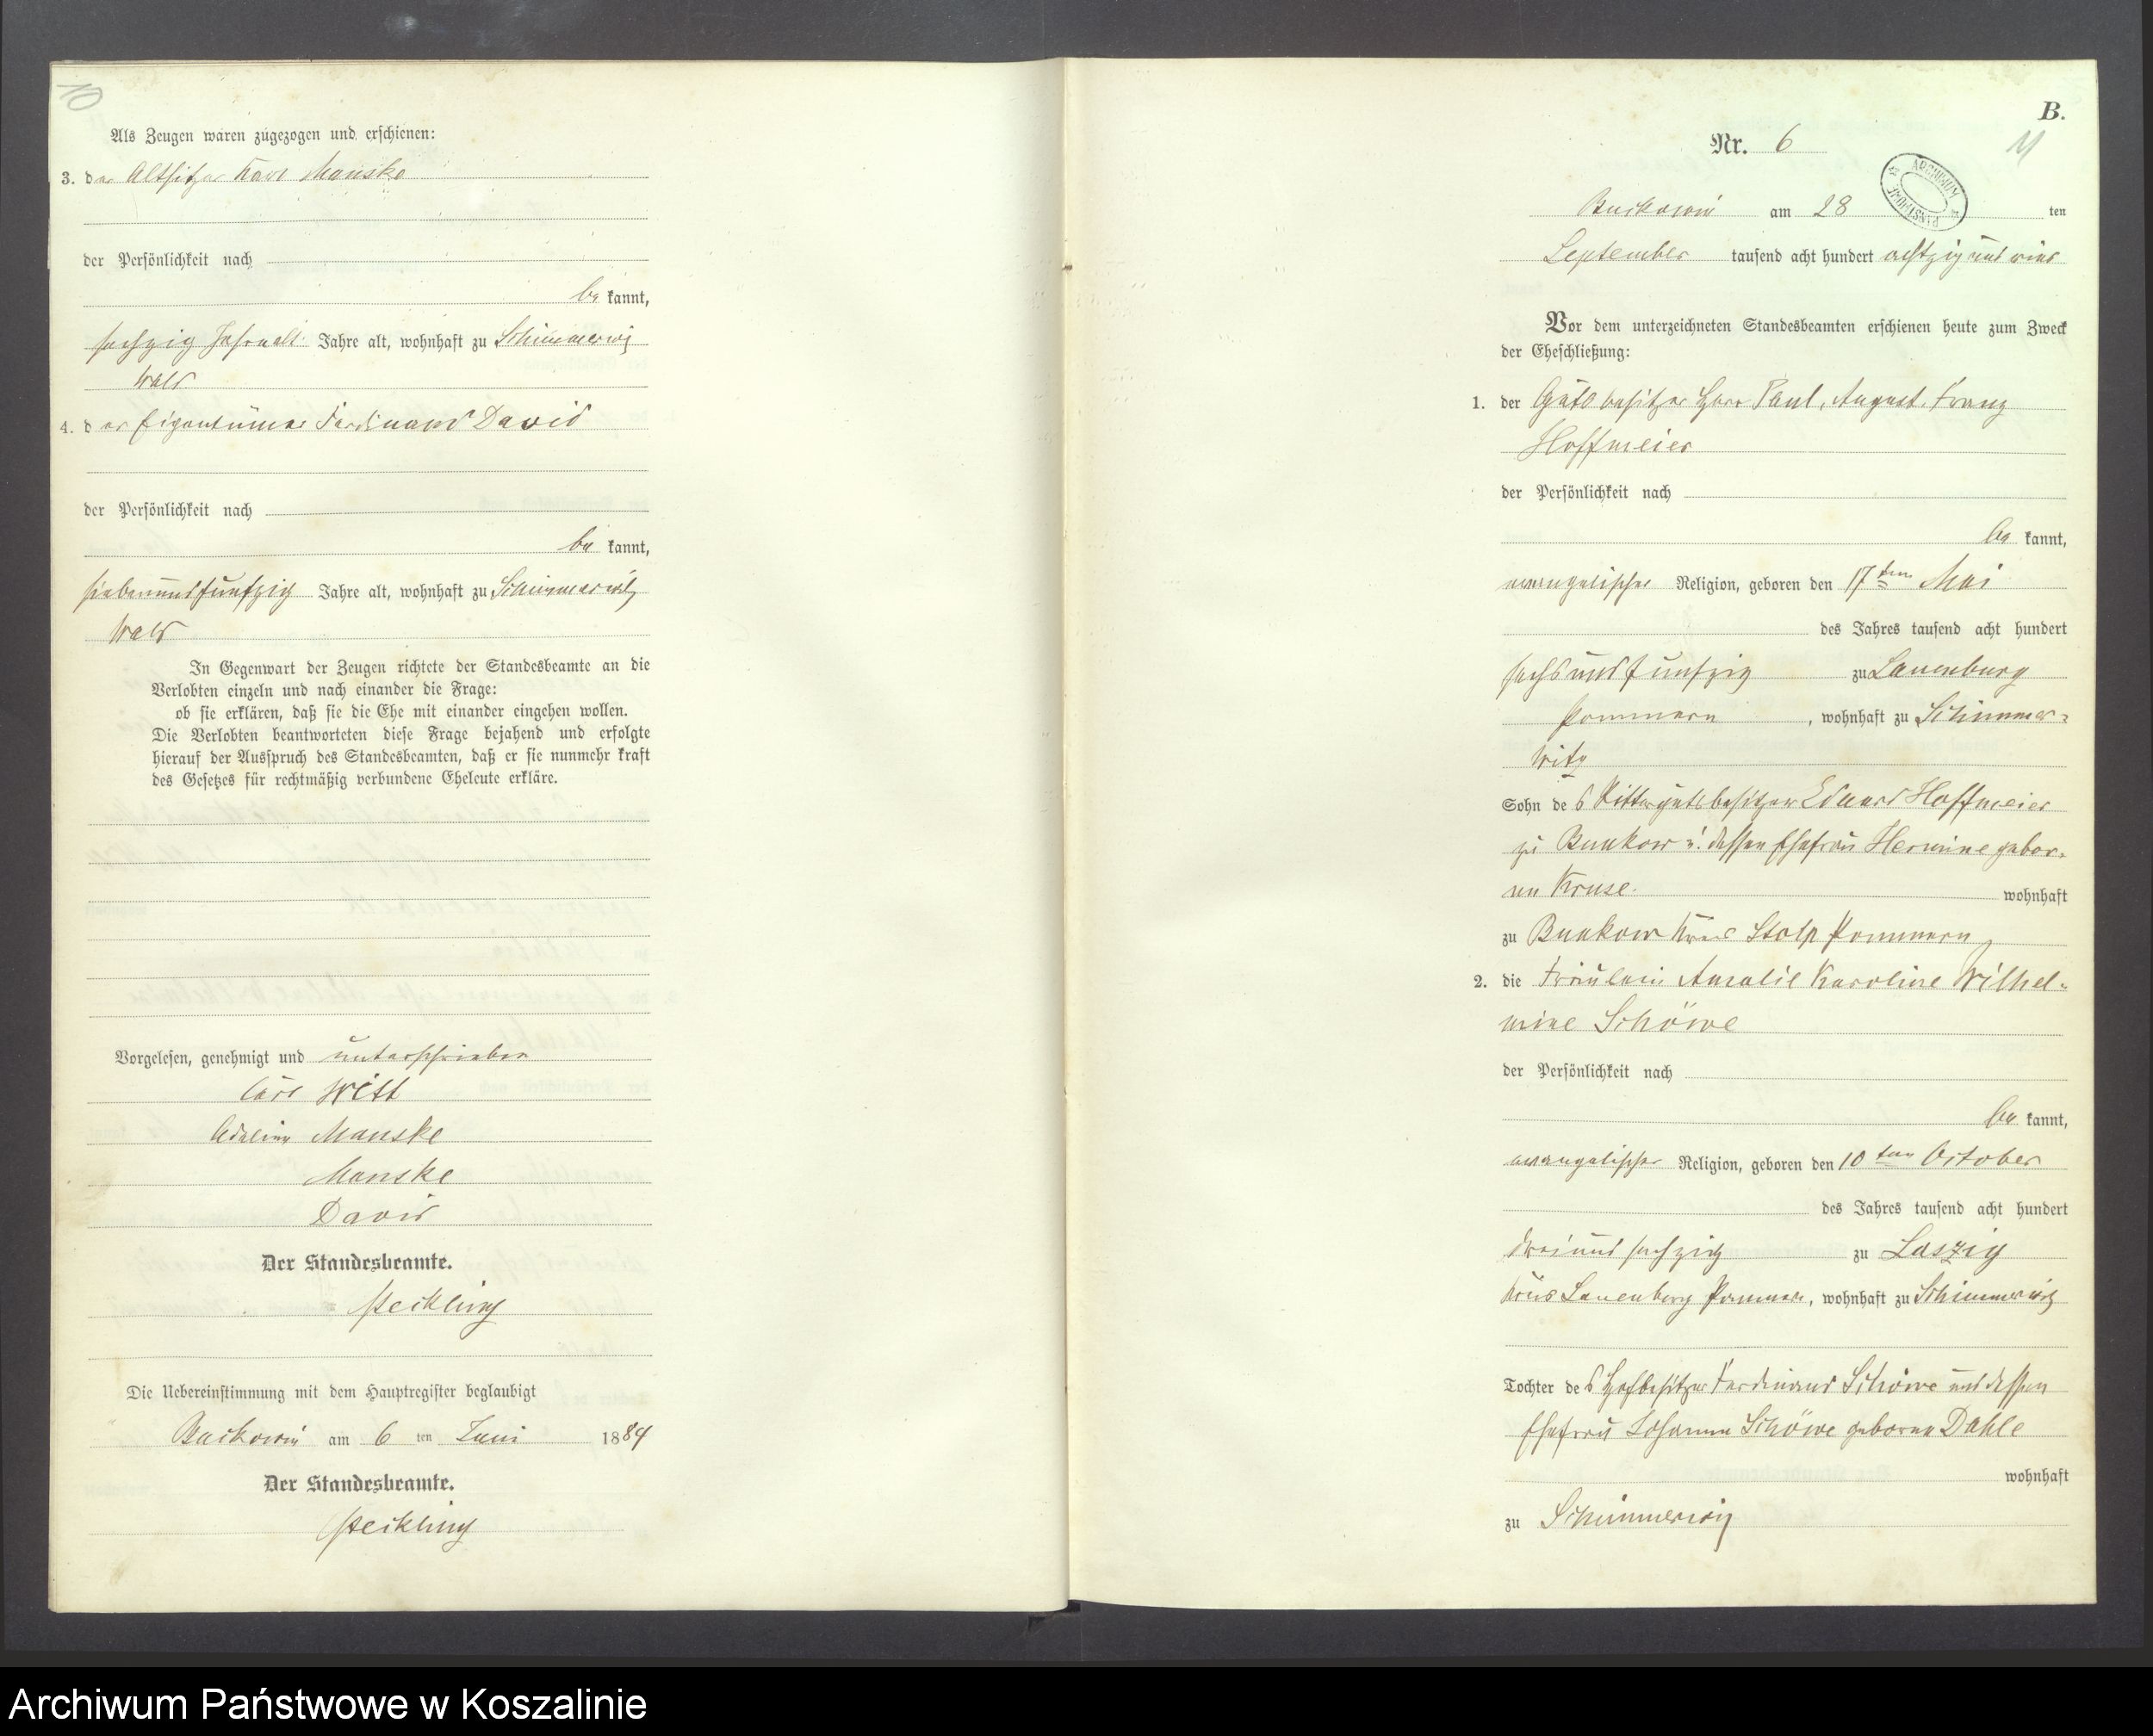 10
Als Zeugen waren zugezogen und erschienen:
3. der Altsitzer Karl Manske
der Persönlichkeit nach
be kannt,
sechzig Jahre alt Jahre alt, wohnhaft zu Schimmerwitz
Wald
4. der Eigentümer Ferdinand David
der Persönlichkeit nach
be kannt,
siebenundfunfzig Jahre alt, wohnhaft zu Schimmerwitz
Wald
In Gegenwart der Zeugen richtete der Standesbeamte an die
Verlobten einzeln und nach einander die Frage:
ob sie erklären, daß sie die Ehe mit einander eingehen wollen.
Die Verlobten beantworteten diese Frage bejahend und erfolgte
hierauf der Ausspruch des Standesbeamten, daß er sie nunmehr kraft
des Gesetzes für rechtmäßig verbundene Eheleute erkläre.
Vorgelesen, genehmigt und unterschrieben
Carl Witt
Adeline Manske
Manske
David
Der Standesbeamte.
Steckling
Die Uebereinstimmung mit dem Hauptregister beglaubigt
Buckowin am 6 ten Juni 1884
Der Standesbeamte.
Steckling
B.
11
Nr. 6
ARCHIWUM PAŃSTWOWE
Buckowin am 28 ten
September tausend acht hundert achtzig und vier
Vor dem unterzeichneten Standesbeamten erschienen heute zum Zweck
der Eheschließung:
1. der Gutsbesitzer Herr Paul, August, Franz
Hoffmeier
der Persönlichkeit nach
be kannt,
evangelischer Religion, geboren den 17ten Mai
des Jahres tausend acht hundert
sechsundfunfzig zu Lauenburg
Pommern, wohnhaft zu Schimmer-
witz
Sohn des Rittergutsbesitzer Eduard Hoffmeier
zu Bunkow u. dessen Ehefrau Hermine gebor-
en Kruse. wohnhaft
zu Bunkow Kreis Stolp Pommern
2. die Fräulein Amalie Karoline Wilhel-
mine Schöwe
der Persönlichkeit nach
be kannt,
evangelischer Religion, geboren den 10ten October
des Jahres tausend acht hundert
dreiund sechzig zu Laszig
Kreis Lauenburg Pommern, wohnhaft zu Schimmerwitz
Tochter des Hofbesitzer Ferdinand Schöwe und dessen
Ehefrau Johanna Schöwe geborne Dahle
wohnhaft
zu Schimmerwitz
Archiwum Państwowe w Koszalinie